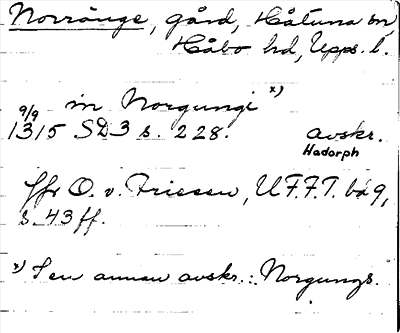 Norränge, gård, Håtuna sn,
Håbo hd, Upps. l.
in Norgungi x)
9/9
1315 SD 3 s. 228. avskr.
Hadorph
Jfr O. v. Friesen, UFFT. bd 9,
s. 43 ff.
x) I en annan avskr.: Norgungs.